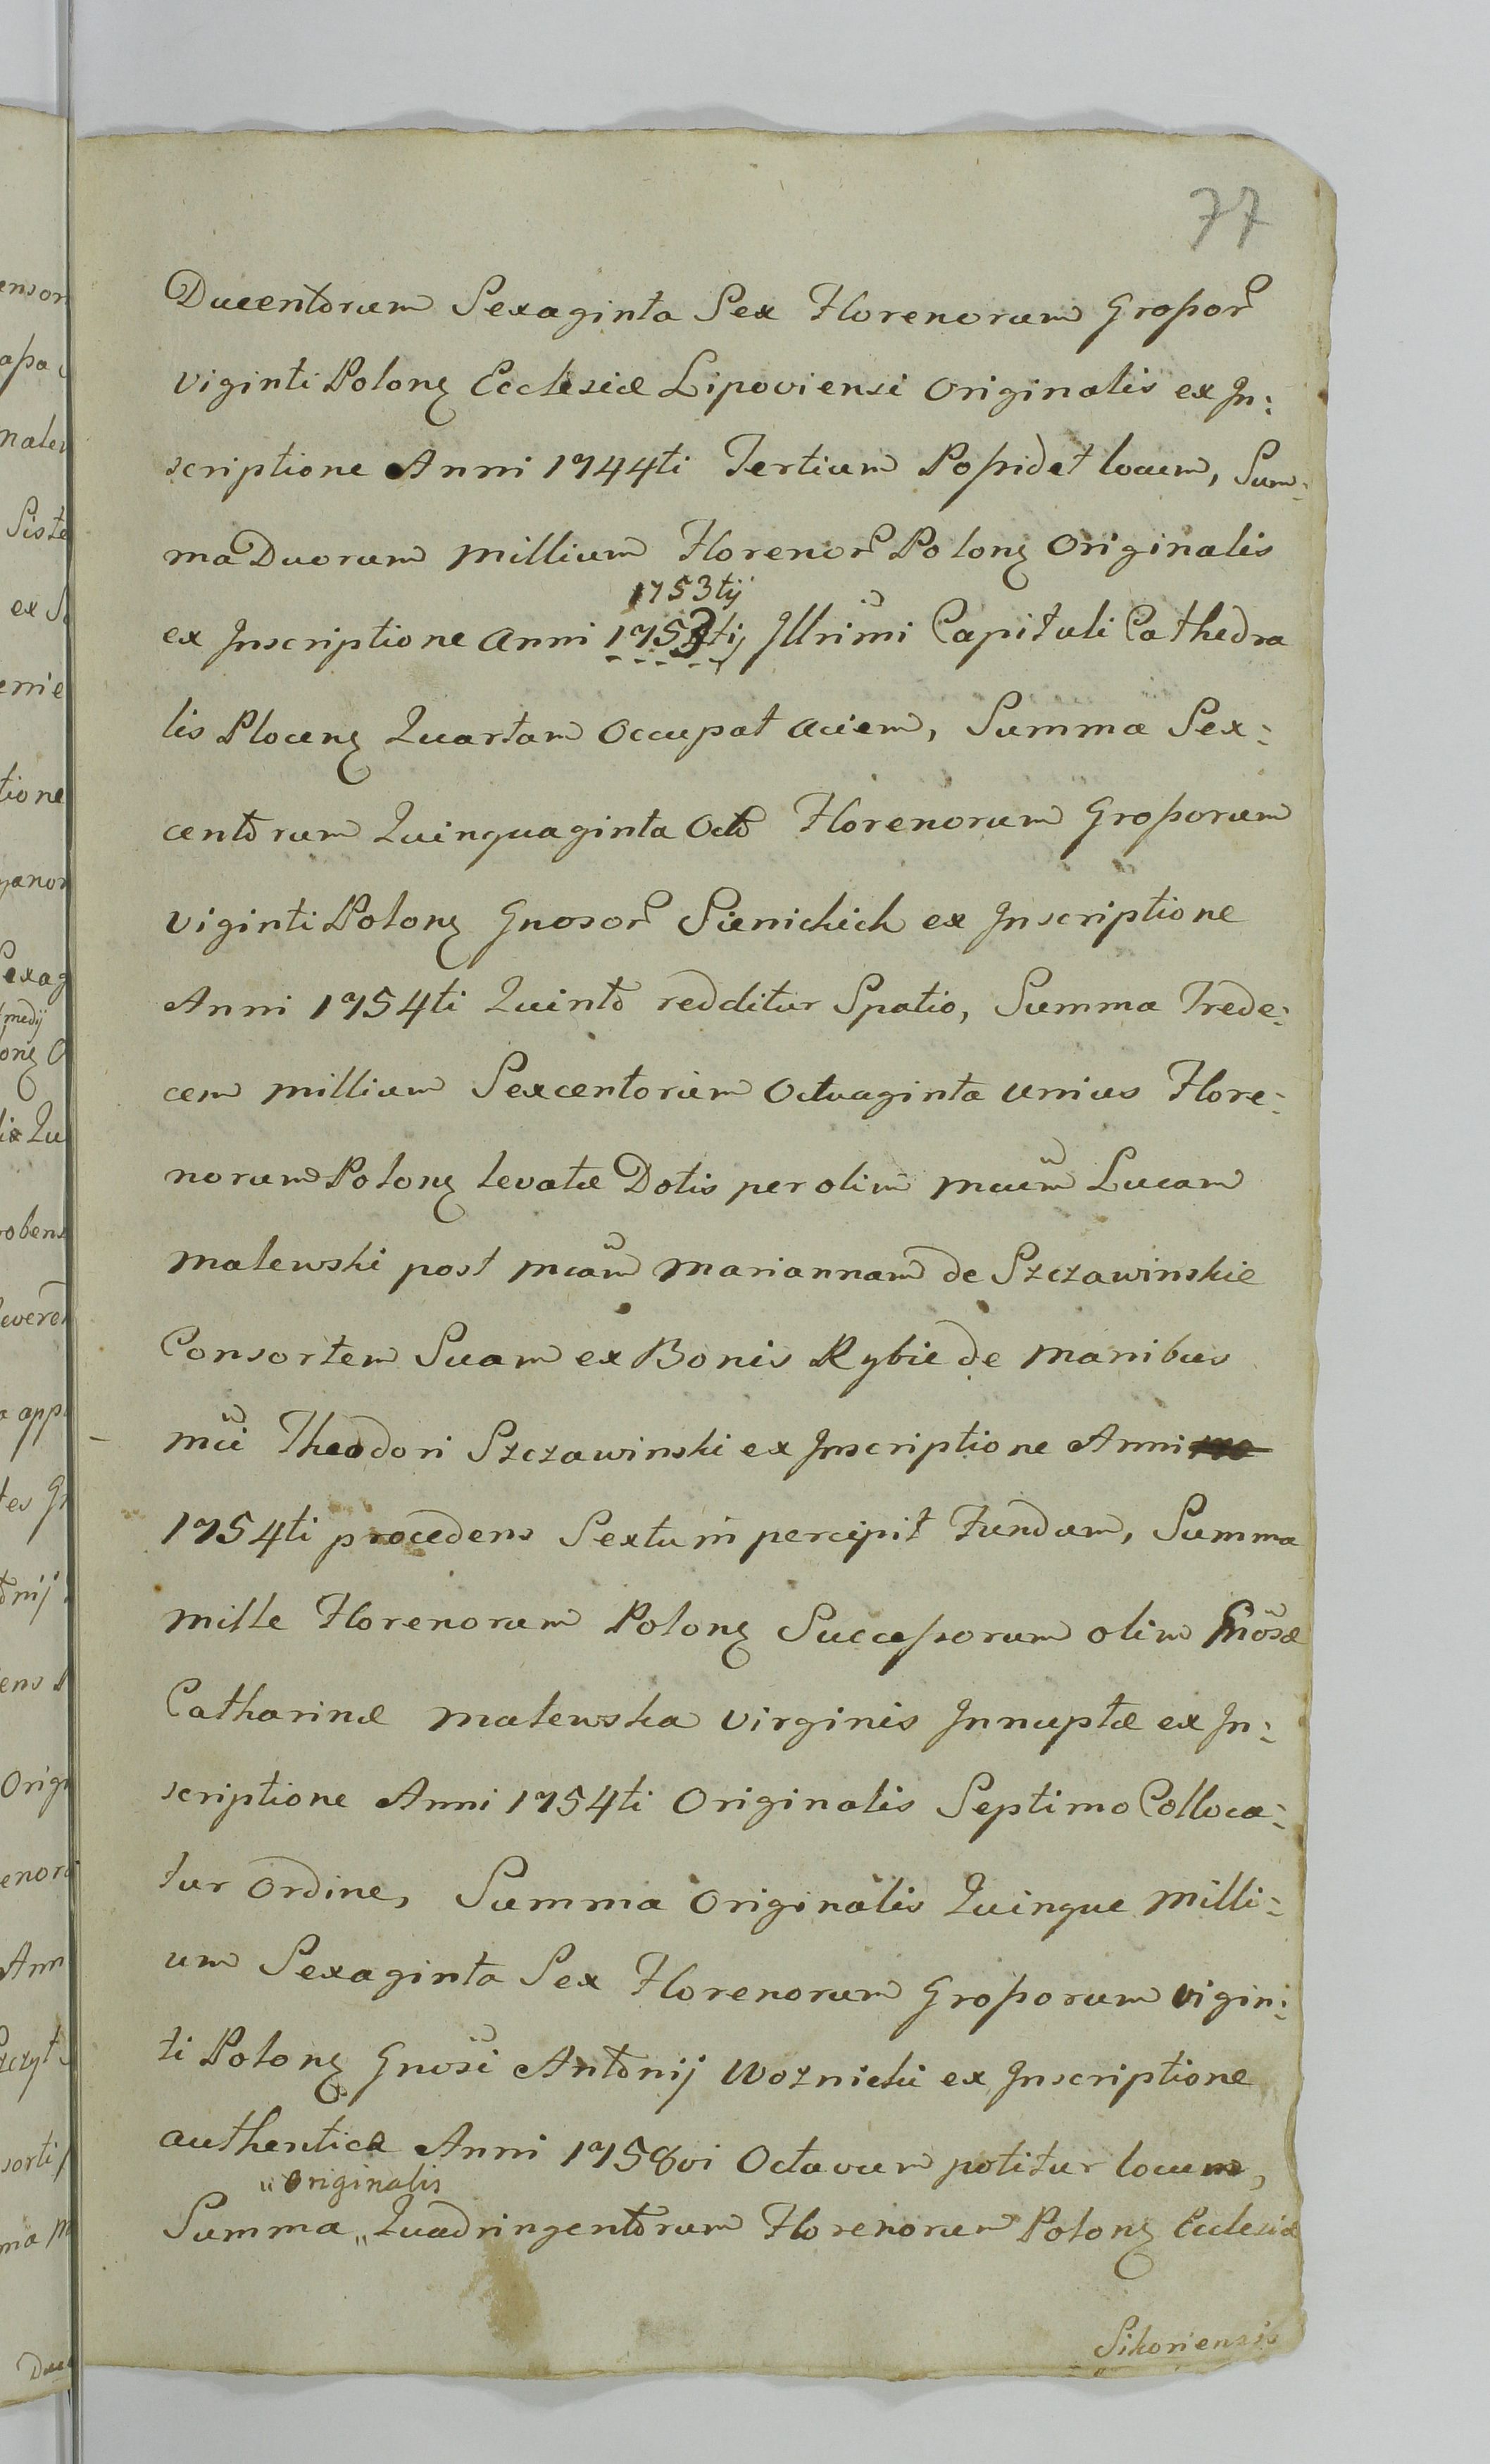 77
Ducentorum Sexaginta Sex Florenorum Grossor
viginti Polon Ecclesiæ Lipoviensi Originalis ex In:
scriptione Anni 1744ti Tertium Possidet locum, Sum:
ma Duorum millium Florenor Polon Originalis
1753tij
ex Inscriptione Anni 1753tij Illrimi Capituli Cathedra
lis Plocen Quartam Occupat aciem, Summa Sex:
centorum Quinquaginta Octo Florenorum Grossorum
viginti Polon Gnosor Sienickich ex Inscriptione
Anni 1754ti Quinto redditur Spatio, Summa Trede:
cem millium Sexcentorum Octuaginta unius Flore:
norum Polon levatæ Dotis per olim mcum Lucam
Malewski post mcam Mariannam de Szczawinskie
Consortem Suam ex Bonis Rybie de manibus
mci Theodori Szczawinski ex Inscriptione Anni
1754ti procedens Sextum percipit Fundum, Summa
mille Florenorum Polon Successorum olim Gnosæ
Catharinæ Malewska virginis Innuptæ ex In:
scriptione Anni 1754ti Originalis Septimo Colloca:
tur Ordine, Summa Originalis Quinque milli:
um Sexaginta Sex Florenorum Grossorum vigin:
ti Polon Gnosi Antonij Woznicki ex Inscriptione
authentica Anni 1758vi Octavum potitur locum,
"Originalis
Summa „ Quadringentorum Florenorum Polon Ecclesiæ
Sikoriensis